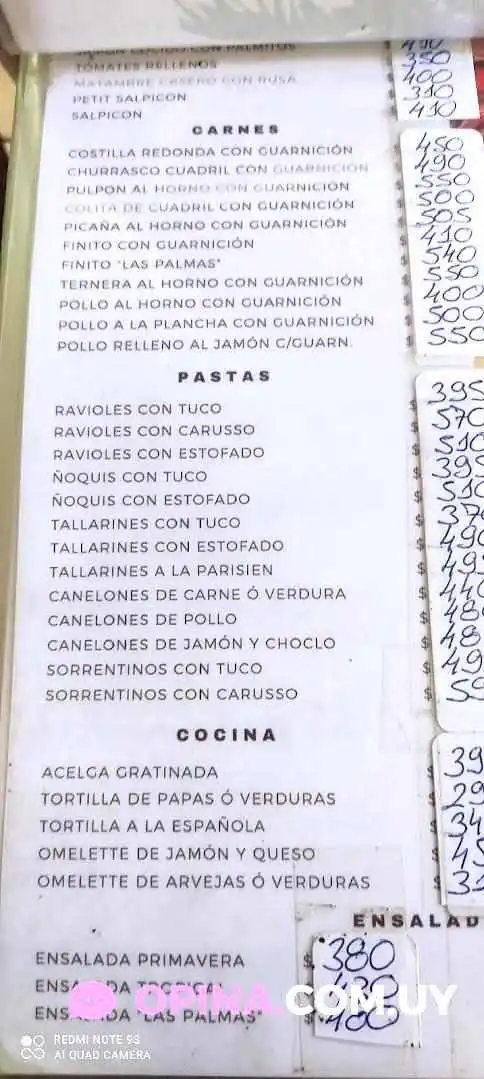 JAMON COCIDO CON PALMITOS 410
TOMATES RELLENOS 350
MATAMBRE CASERO CON RUSA 400
PETIT SALPICON 310
SALPICON 410
CARNES
COSTILLA REDONDA CON GUARNICIÓN 450
CHURRASCO CUADRIL CON GUARNICIÓN 490
PULPON AL HORNO CON GUARNICIÓN $ 550
COLITA DE CUADRIL CON GUARNICIÓN $ 500
PICAÑA AL HORNO CON GUARNICIÓN $ 505
FINITO CON GUARNICIÓN $ 410
FINITO "LAS PALMAS" $ 540
TERNERA AL HORNO CON GUARNICIÓN $ 550
POLLO AL HORNO CON GUARNICIÓN $ 400
POLLO A LA PLANCHA CON GUARNICIÓN $ 500
POLLO RELLENO AL JAMÓN C/GUARN. $ 550
PASTAS
RAVIOLES CON TUCO $ 395
RAVIOLES CON CARUSSO $ 570
RAVIOLES CON ESTOFADO $ 510
ÑOQUIS CON TUCO $ 395
ÑOQUIS CON ESTOFADO $ 510
TALLARINES CON TUCO $ 370
TALLARINES CON ESTOFADO $ 490
TALLARINES A LA PARISIEN $ 495
CANELONES DE CARNE Ó VERDURA $ 440
CANELONES DE POLLO $ 480
CANELONES DE JAMÓN Y CHOCLO $ 48
SORRENTINOS CON TUCO $ 49
SORRENTINOS CON CARUSSO $ 59
COCINA
ACELGA GRATINADA $ 39
TORTILLA DE PAPAS Ó VERDURAS $ 29
TORTILLA A LA ESPAÑOLA $ 34
OMELETTE DE JAMÓN Y QUESO $ 45
OMELETTE DE ARVEJAS Ó VERDURAS $ 31
ENSALAD
ENSALADA PRIMAVERA $ 380
ENSALADA TROPICAL 430
ENSALADA "LAS PALMAS" $ 480
OPINA.COM.UY
REDMI NOTE 9S
AI QUAD CAMERA